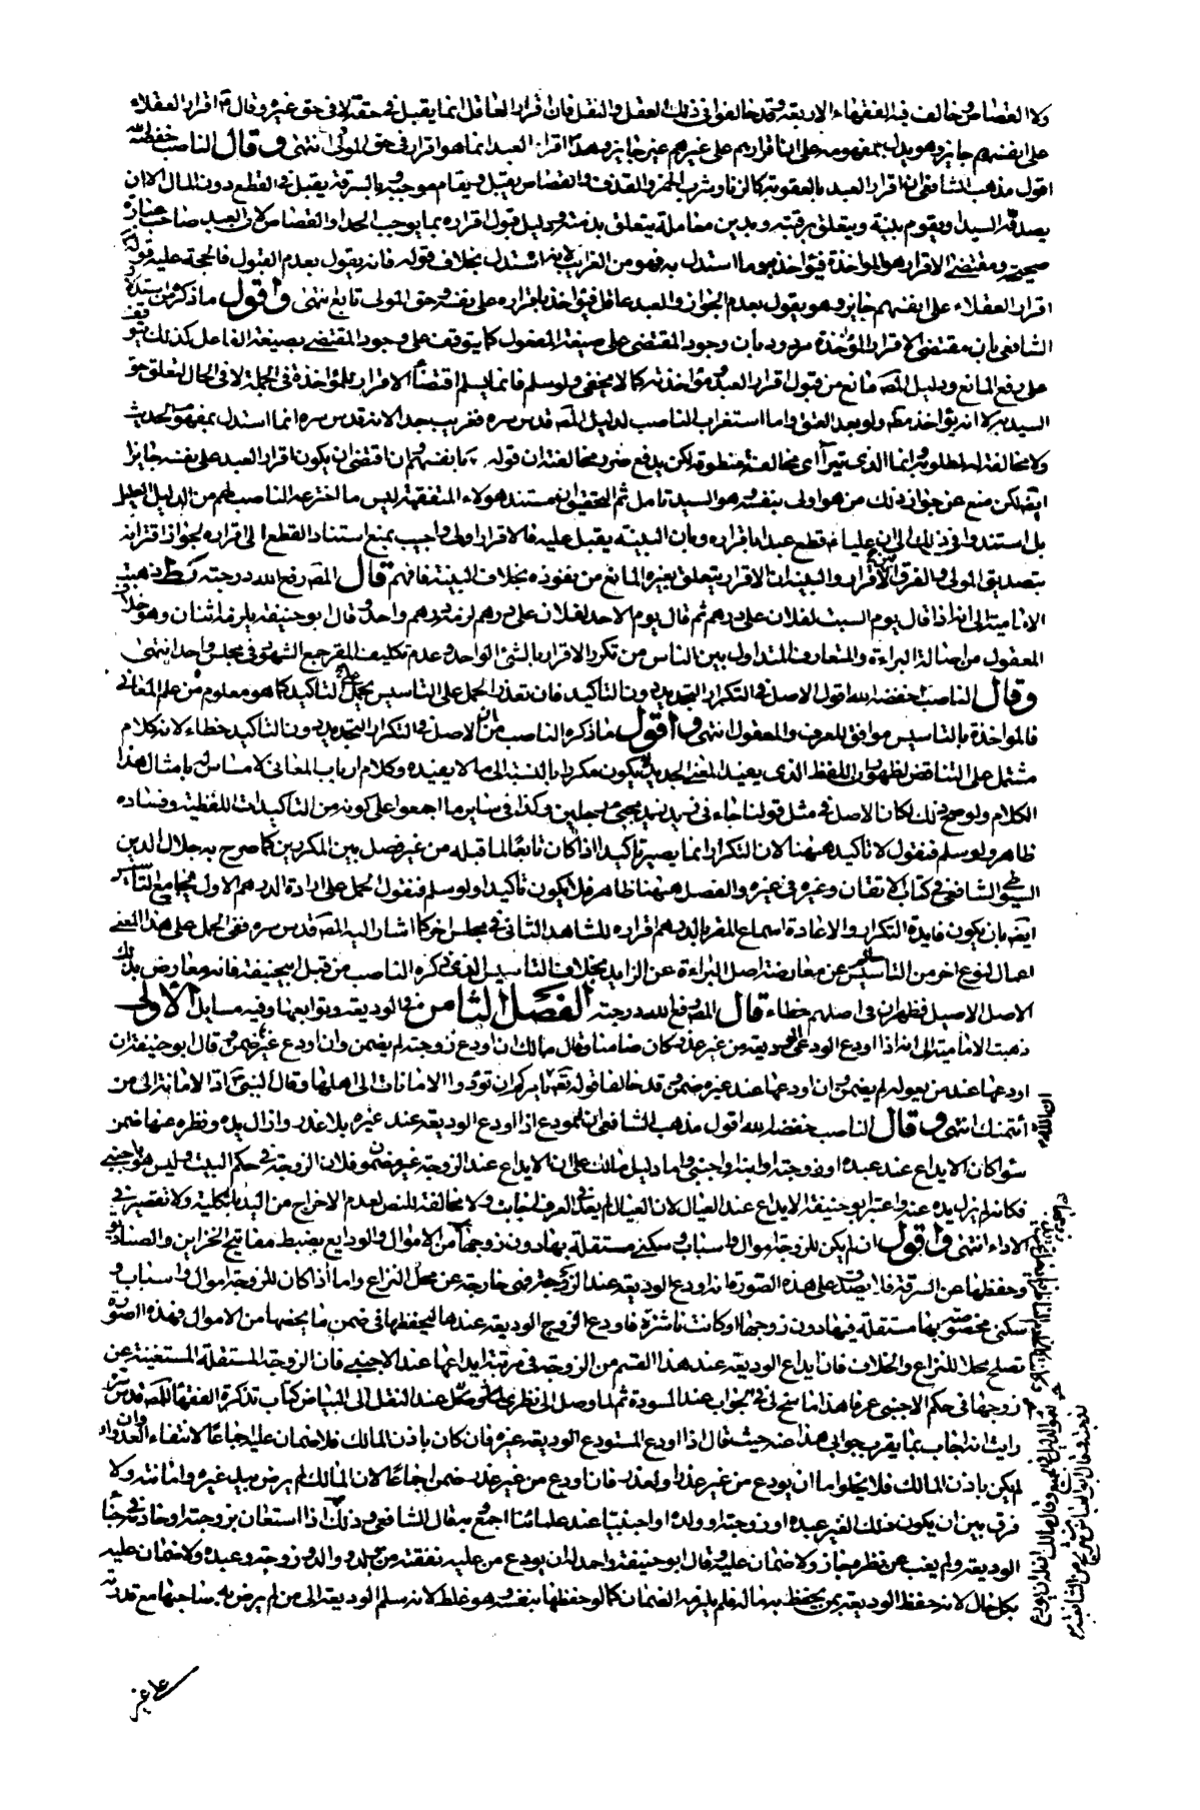 ولا القصاص وخالف فيه الفقهاء الاربعة وقد خالفوا في ذلك العقل والنقل فان اقرار العاقل انما يقبل في حقه لا في حق غيره وقال ع اقرار العقلاء
على انفسهم جايز وهو يدل بمفهومه على ان اقرارهم على غيرهم غير جايز وهذا اقرار العبد انما هو اقرار في حق المولى انتهى وقال الناصب خفضه الله
اقول مذهب الشافعي ان اقرار العبد بالعقوبة كالزنا وشرب الخمر والقذف والقصاص يقبل ويقام موجبه وبالسرقة يقبل في القطع دون المال الا ان
يصدقه السيد او يقوم بينة ويتعلق برقبته وبدين معاملة يتعلق بذمته ودليل قبول اقراره بما يوجب الحد او القصاص لان العبد صاحب عبارة
صحيحة ومقتضى الاقرار هو المؤاخذة فيؤاخذ به وما استدل به فهو من الغرائب فانه استدل بخلاف قوله فانه يقول بعدم القبول فالحجة عليه قوله
اقرار العقلاء على انفسهم جايز وهو يقول بعدم الجواز والعبد عاقل فيؤاخذ باقراره على نفسه وحق المولى تابع انتهى واقول ما ذكره من استدلال
الشافعي بان مقتضى الاقرار المؤاخذة مردود بان وجود المقتضى على صيغة المفعول كما يتوقف على وجود المقتضي بصيغة الفاعل كذلك يتوقف
على رفع المانع ودليل المص مانع من قبول اقرار العبد ومؤاخذته كما لا يخفى ولو سلم فانما يسلم اقتضاء الاقرار للمؤاخذة في الجملة لا في الحال لتعلق حق
السيد به لا انه يؤاخذ به ولو بعد العتق واما استغراب الناصب لدليل المص قدس سره فغريب جدا لانه قدس سره انما استدل بمفهوم الحديث
ولا مخالفة لمطلوبه وانما الذي يتراءى مخالفته منطوقه لكن يدفع ضرر مخالفته ان قوله ع بانفسهم وان اقتضى ان يكون اقرار العبد على نفسه جايزا
ايضا لكن منع عن جواز ذلك من هو اولى بنفسه وهو السيد تامل ثم التحقيق ان مستند هؤلاء المتفقهة ليس ما اخترعه الناصب لهم من الدليل العليل
بل استندوا في ذلك الى ان عليا ع قطع عبدا باقراره وبان البينة يقبل عليه فالاقرار اولى واجيب بمنع استناد القطع الى اقراره لجواز اقترانه
بتصديق المولى والفرق بين الاقرار والبينة ان الاقرار يتعلق بغيره المانع من نفوذه بخلاف البينة فافهم قال المص رفع الله درجته كط ذهبت
الامامية الى انه اذا قال يوم السبت لفلان علي درهم ثم قال يوم الاحد لفلان علي درهم لزمه درهم واحد وقال ابو حنيفة يلزمه اثنان وهو خلاف
المعقول من اصالة البراءة والمتعارف المتداول بين الناس من تكرر الاقرار بالشئ الواحد وعدم تكليف المقر جمع الشهود في مجلس واحد انتهى
وقال الناصب خفضه الله اقول الاصل في التكرار التجديد دون التاكيد فان تعذر الحمل على التاسيس يحمل على التاكيد كما هو معلوم من علم المعاني
فالمؤاخذة بالتاسيس موافق للعرف والمعقول انتهى واقول ما ذكره الناصب من ان الاصل في التكرار التجديد دون التاكيد خطاء لانه كلام
مشتمل على التناقض لظهور ان اللفظ الذي يفيد المعنى الجديد لا يكون مكررا بالنسبة الى ما لا يفيده وكلام ارباب المعاني لا مساس له بامثال هذا
الكلام ولو صح ذلك لكان الاصل في مثل قولنا جاءني زيد زيد مجيء رجلين وكذا في ساير ما اجمعوا على كونه من التاكيدات اللفظية وفساده
ظاهر ولو سلم فنقول لا تاكيد ههنا لان التكرار انما يصير تاكيدا اذا كان تابعا لما قبله من غير فصل بين المكررين كما صرح به جلال الدين
السيوطي الشافعي في كتاب الاتقان وغيره في غيره والفصل ههنا ظاهر فلا يكون تاكيدا ولو سلم فنقول الحمل على ارادة الدرهم الاول يجامع التاسيس
ايضا بان يكون فايدة التكرار والاعادة اسماع المقر بالدرهم اقراره للشاهد الثاني في مجلس اخر كما اشار اليه المص قدس سره ففي الحمل على هذا المعنى
اعمال لنوع اخر من التاسيس سالم عن معارضة اصل البراءة عن الزايد بخلاف التاسيس الذي ذكره الناصب من قبل ابي حنيفة فانه معارض بذلك
الاصل الاصيل فظهر ان في اصلهم خطاء قال المص رفع الله درجته الفصل الثامن في الوديعة وتوابعها وفيه مسايل الاولى
ذهبت الامامية الى انه اذا اودع الودعي الوديعة من غير عذر كان ضامنا وقال مالك ان اودع زوجته لم يضمن وان اودع غيرها ضمن وقال ابو حنيفة ان
اودعها عند من يعوله لم يضمن وان اودعها عند غيره ضمن وقد خالفا قوله تعالى يامركم ان تؤدوا الامانات الى اهلها وقال النبي ص اد الامانة الى من
ائتمنك انتهى وقال الناصب خفضه الله اقول مذهب الشافعي ان المودع اذا اودع الوديعة عند غيره بلا عذر وازال يده ونظره عنها ضمن
سواء كان الايداع عند عبده او زوجته او ابنه او اجنبي واما دليل مالك على ان الايداع عند الزوجة غير مضمون فلان الزوجة في حكم البيت وليس هو باجنبي
فكانه لم يزل يده عنه واعتبر ابو حنيفة الايداع عند العيال لان العيال لم يعد في العرف اجانب ولا مخالفة للنص لعدم الاخراج من اليد بالكلية ولا تقصير في
الاداء انتهى واقول ان لم يكن للزوجة اموال واسباب وسكنى مستقلة بها دون زوجها من الاموال والودايع بضبط مفاتيح الخزاين والصناديق
وحفظها عن السرقة فلا يصدق على هذه الصورة انه اودع الوديعة عند الزوجة فهي خارجة عن محل النزاع واما اذا كان للزوجة اموال واسباب و
سكنى مخصوصة بها مستقلة فيها دون زوجها او كانت ناشزة فاودع الزوج الوديعة عندها ليحفظها في ضمن ما يخصها من الاموال فهذه الصورة
تصلح محلا للنزاع والخلاف فان ايداع الوديعة عند هذا القسم من الزوجة في مرتبة ايداعها عند الاجنبي فان الزوجة المستقلة المستغنية عن
زوجها في حكم الاجنبي عرفا هذا ما سنح لي في الجواب عند المسودة ثم لما وصل الى نظري عند النقل الى البياض كتاب تذكرة الفقهاء للمص قدس سره
رايت انه اجاب بما يقرب جوابي هذا عنه حيث قال اذا اودع المستودع الوديعة غيره فان كان باذن المالك فلا ضمان عليه اجماعا لانتفاء العدوان وان
لم يكن باذن المالك فلا يخلو اما ان يودع من غير عذر او لعذر فان اودع من غير عذر ضمن اجماعا لان المالك لم يرض بيد غيره وامانته ولا
فرق بين ان يكون ذلك الغير عبده او زوجته او ولده او اجنبيا عند علمائنا اجمع وبه قال الشافعي وذلك اذا استعان بزوجته او خادمه في خباء
الوديعة ولم يغب عن نظره جاز ولا ضمان عليه وقال ابو حنيفة واحمد له ان يودع من عليه نفقته من ولد ووالد وزوجة وعبد ولا ضمان عليه
بكل حال لانه حفظ الوديعة بمن يحفظ به ماله فلم يلزمه الضمان كما لو حفظها بنفسه وهو غلط لانه سلم الوديعة الى من لم يرض به صاحبها مع قدرته
ان الله